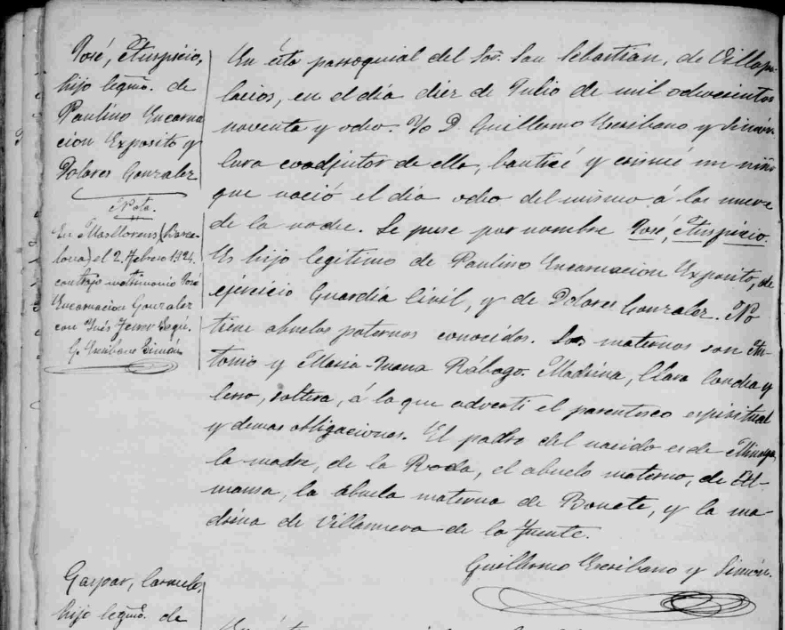 José, Auspicio,
hijo legmo. de
Paulino Encarna
cion Exposito y
Dolores Gonzalez
Nota.
En Masllorens (Barce-
lona) el 2 Febrero 1924
contrajo matrimonio José
Encarnacion Gonzalez
con Inés
G. Escribano Simón
En ésta parroquial del Sor. San Sebastián, de Villapa-
lacios, en el día diez de Julio de mil ochocientos
noventa y ocho. Yo D. Guillermo Escribano y Simón
Cura coadjutor de ella, bauticé y crismé un niño
que nació el día ocho del mismo á las nueve
de la noche. Se puse por nombre José, Auspicio.
Es hijo legítimo de Paulino Encarnacion Exposito, de
ejercicio Guardia Civil, y de Dolores Gonzalez. No
tiene abuelos paternos conocidos. Los maternos son An-
tonio y Maria-Juana Rábago. Madrina, Clara
soltera, á la que advertí el parentesco espiritual
y demas obligaciones. El padre del nacido es de Minaya,
la madre, de la Roda, el abuelo materno, de Al-
mansa, la abuela materna de Bonete, y la ma-
drina de Villanueva de la Fuente.
Guillermo Escribano y Simón.
Gaspar,
hijo legmo. de